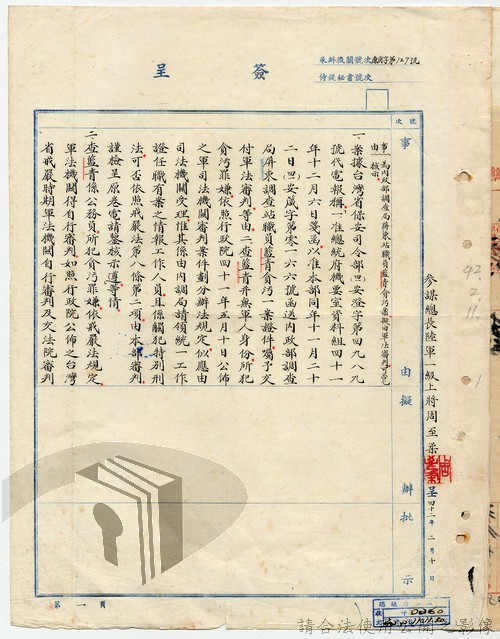 簽呈
來辦機關號次
字第127號
侍從秘書號次
號次
事由擬辦批示
參謀總長陸軍一級上將周至柔呈四十二年二月十日
事由
為內政部調查局屏東站職員藍青貪污案擬由軍法審判可否乞核示
一、案據台灣省保安司令部四安澄字第四九八九
號代電報稱「一、准總統府機要室資料組四十一
年十二月六日箋函以准本部同年十一月二十
二日四安葳字第零一六六號函送內政部調查
局屏東調查站職員藍青貪污一案證件屬予交
付軍法審判等由二、查藍青并無軍人身份所犯
貪污罪嫌依照行政院四十一年五月十日公佈
之軍司法機關審判案件劃分辦法規定似應由
司法機關受理惟其係由內調局請領統一工作
證任職有案之情報工作人員且係觸犯特別刑
法可否依照戒嚴法第八條第二項由本部審判
謹檢呈原卷電請鑒核示遵等情
二、查藍青係公務員所犯貪污罪嫌依戒嚴法規定
軍法機關得自行審判如照行政院公佈之台灣
省戒嚴時期軍法機關自行審判及交法院審判
第一頁
92.
2.
11.
0260
請合法使用公開之影像